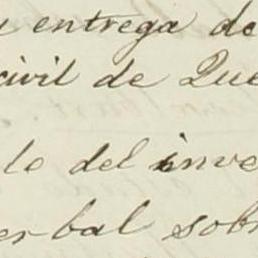 y entrega de
civil de Que
le del inve
erbal sobr